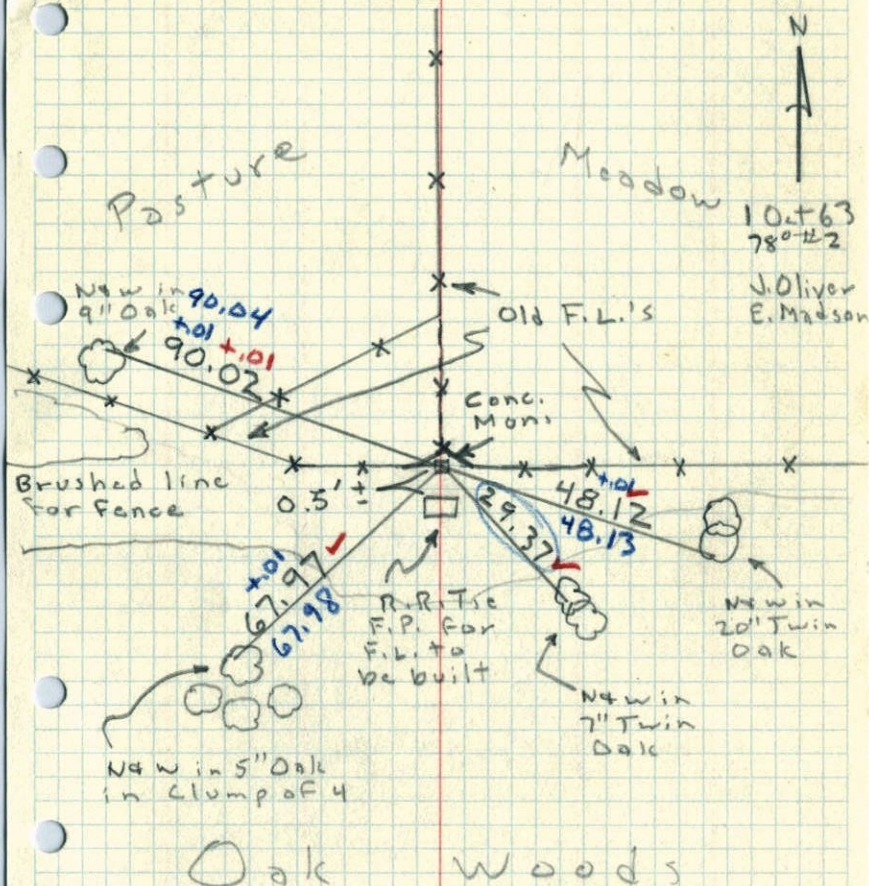 N
Pasture
Meadow
1 Oct 63
78° #2
J. Oliver
E. Madson
N&W in
9" Oak
90.04
+.01
90.02
+.01
Old F.L.'s
Conc.
Mon.
Brushed line
for Fence
0.5' ±
+.01
48.12
48.13
29.37
+.01
67.97
67.98
R.R. Tie
F.P. for
F.L. to
be built
N&W in
20" Twin
Oak
N&W in
7" Twin
Oak
N&W in 5" Oak
in Clump of 4
Oak Woods